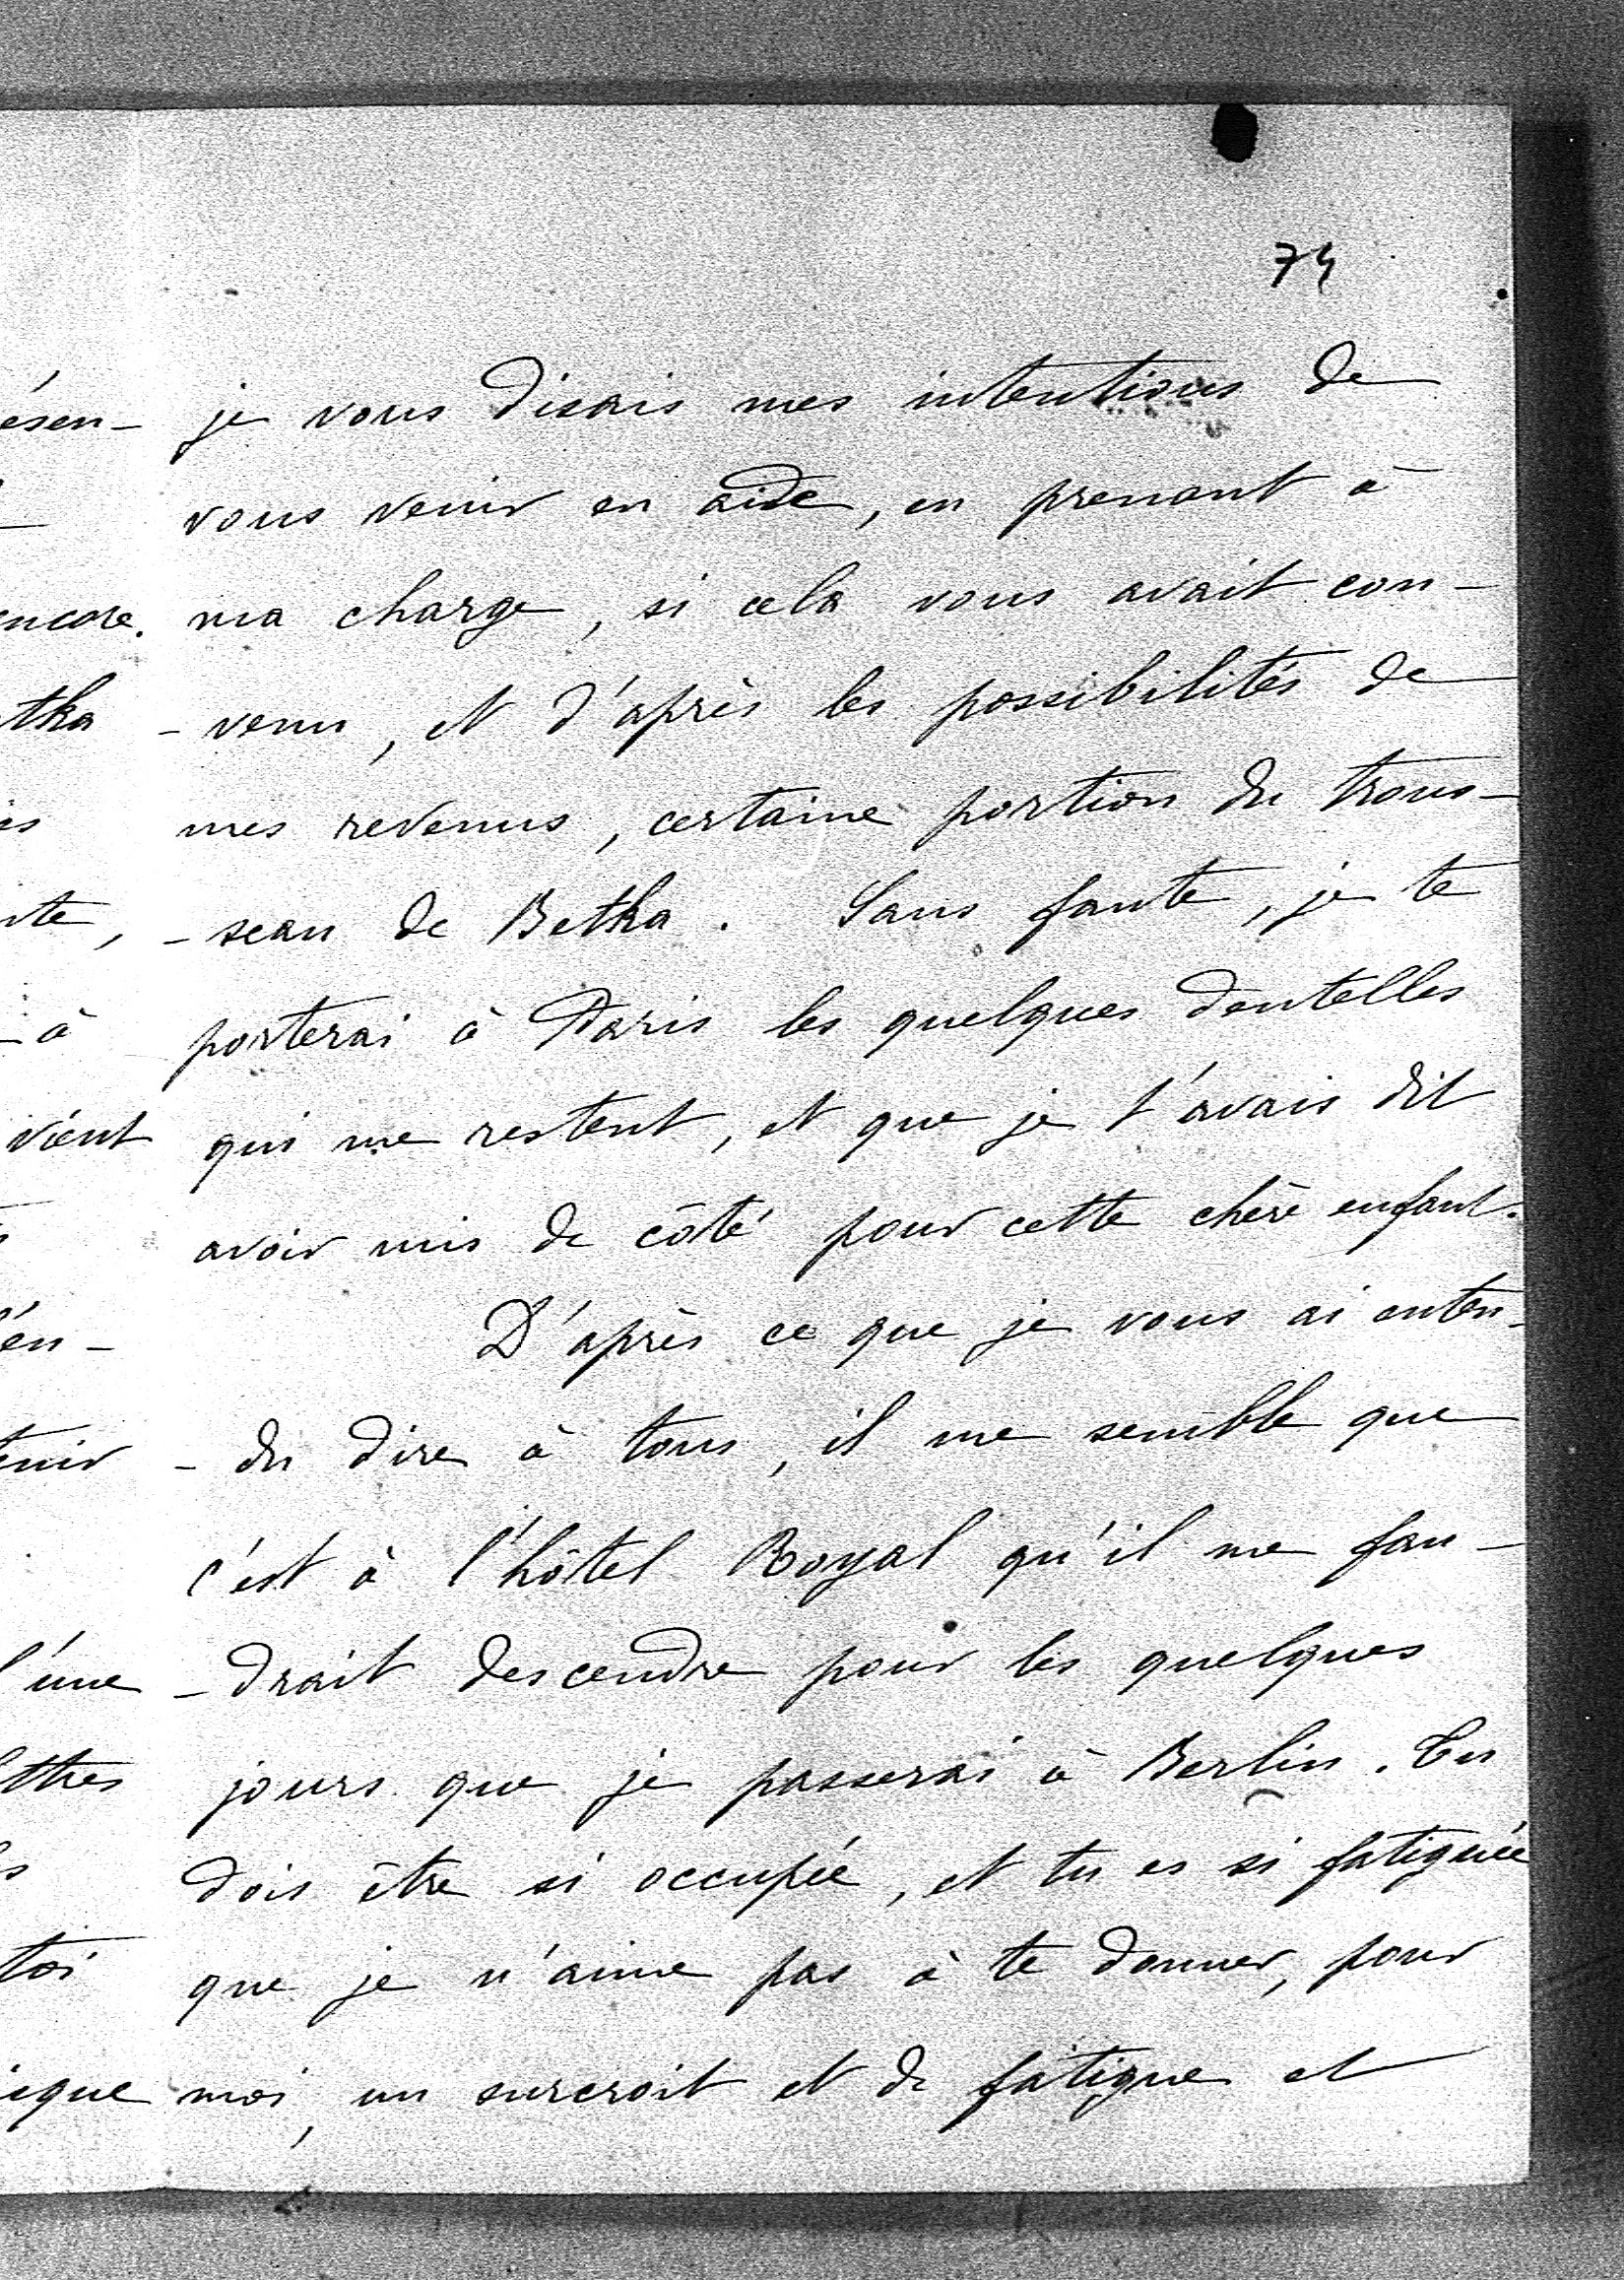 74
je vous disais mes intentions de
vous venir en aide, en prenant à
ma charge, si cela vous avait con-
-venu, et d'après les possibilités de
mes revenus, certaine portion du trous-
-seau de Betka. Sans faute, je te
porterai à Paris les quelques dentelles
qui me restent, et que je t'avais dit
avoir mis de côté pour cette chère enfant.
D'après ce que je vous ai enten-
-du dire à tous, il me semble que
c'est à l'hôtel Royal qu'il me fau-
-drait descendre pour les quelques
jours que je passerai à Berlin. Tu
dois être si occupée, et tu es si fatiguée
que je n'aime pas à te donner, pour
moi, un surcroit et de fatigue et
ésen-
encore.
tka
à
vient
en-
l'une
toi
ique